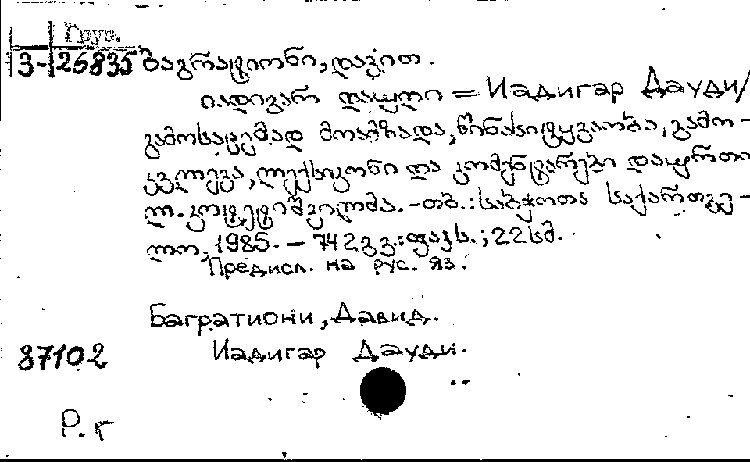 Груз.
3-26835 ბაგრატიონი, დავით.
იადიგარ დაუდი = Иадигар Дауди/
გამოსაცემად მოამზადა, წინასიტყვაობა, გამო-
კვლევა, ლექსიკონი და კომენტარები დაურთო
ლ. კოტეტიშვილმა. -თბ.: საბჭოთა საქართვე-
ლო, 1985. - 742გვ.: ფაქს.; 22სმ.
Предисл. на рус. яз.
Багратиони, Давид.
87102 Иадигар Дауди.
Р. г